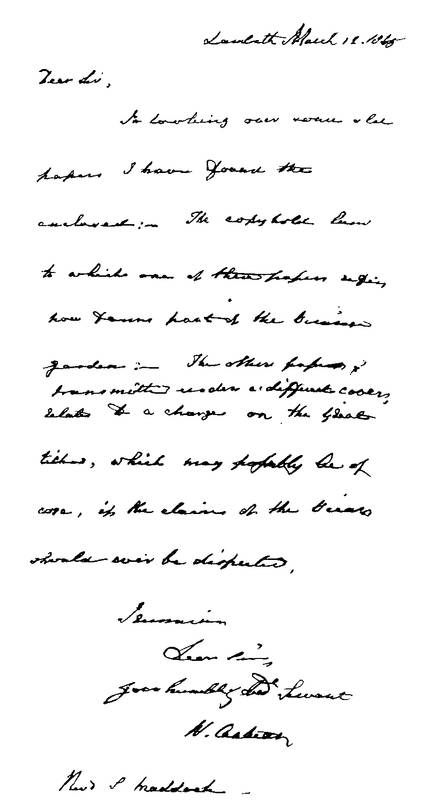 Lambeth March 12. 1845
Dear Sir,
In looking over some old
papers I have found the
enclosed:- The copyhold
to which one of these papers refers
now forms part of the Vicarage
garden:- The other papers,
transmitted under a different cover,
relate to a charge on the
tithes, which may possibly be of
use, if the claims of the Vicars
should ever be disputed.
I remain
Dear Sir,
your humble Obt Servant
W.
Revd S Maddock